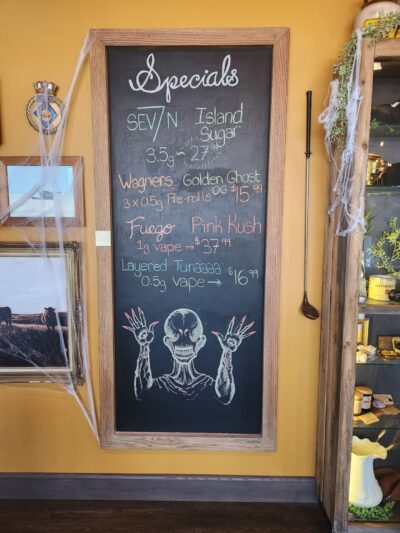 Specials
SEV7N Island
Sugar
3.5g - 27.99
Wagners Golden Ghost
OG
3 x 0.5g Pre-rolls $15.99
Fuego Pink Kush
1g vape → $37.99
Layered Tunaaaa
0.5g vape → $16.99